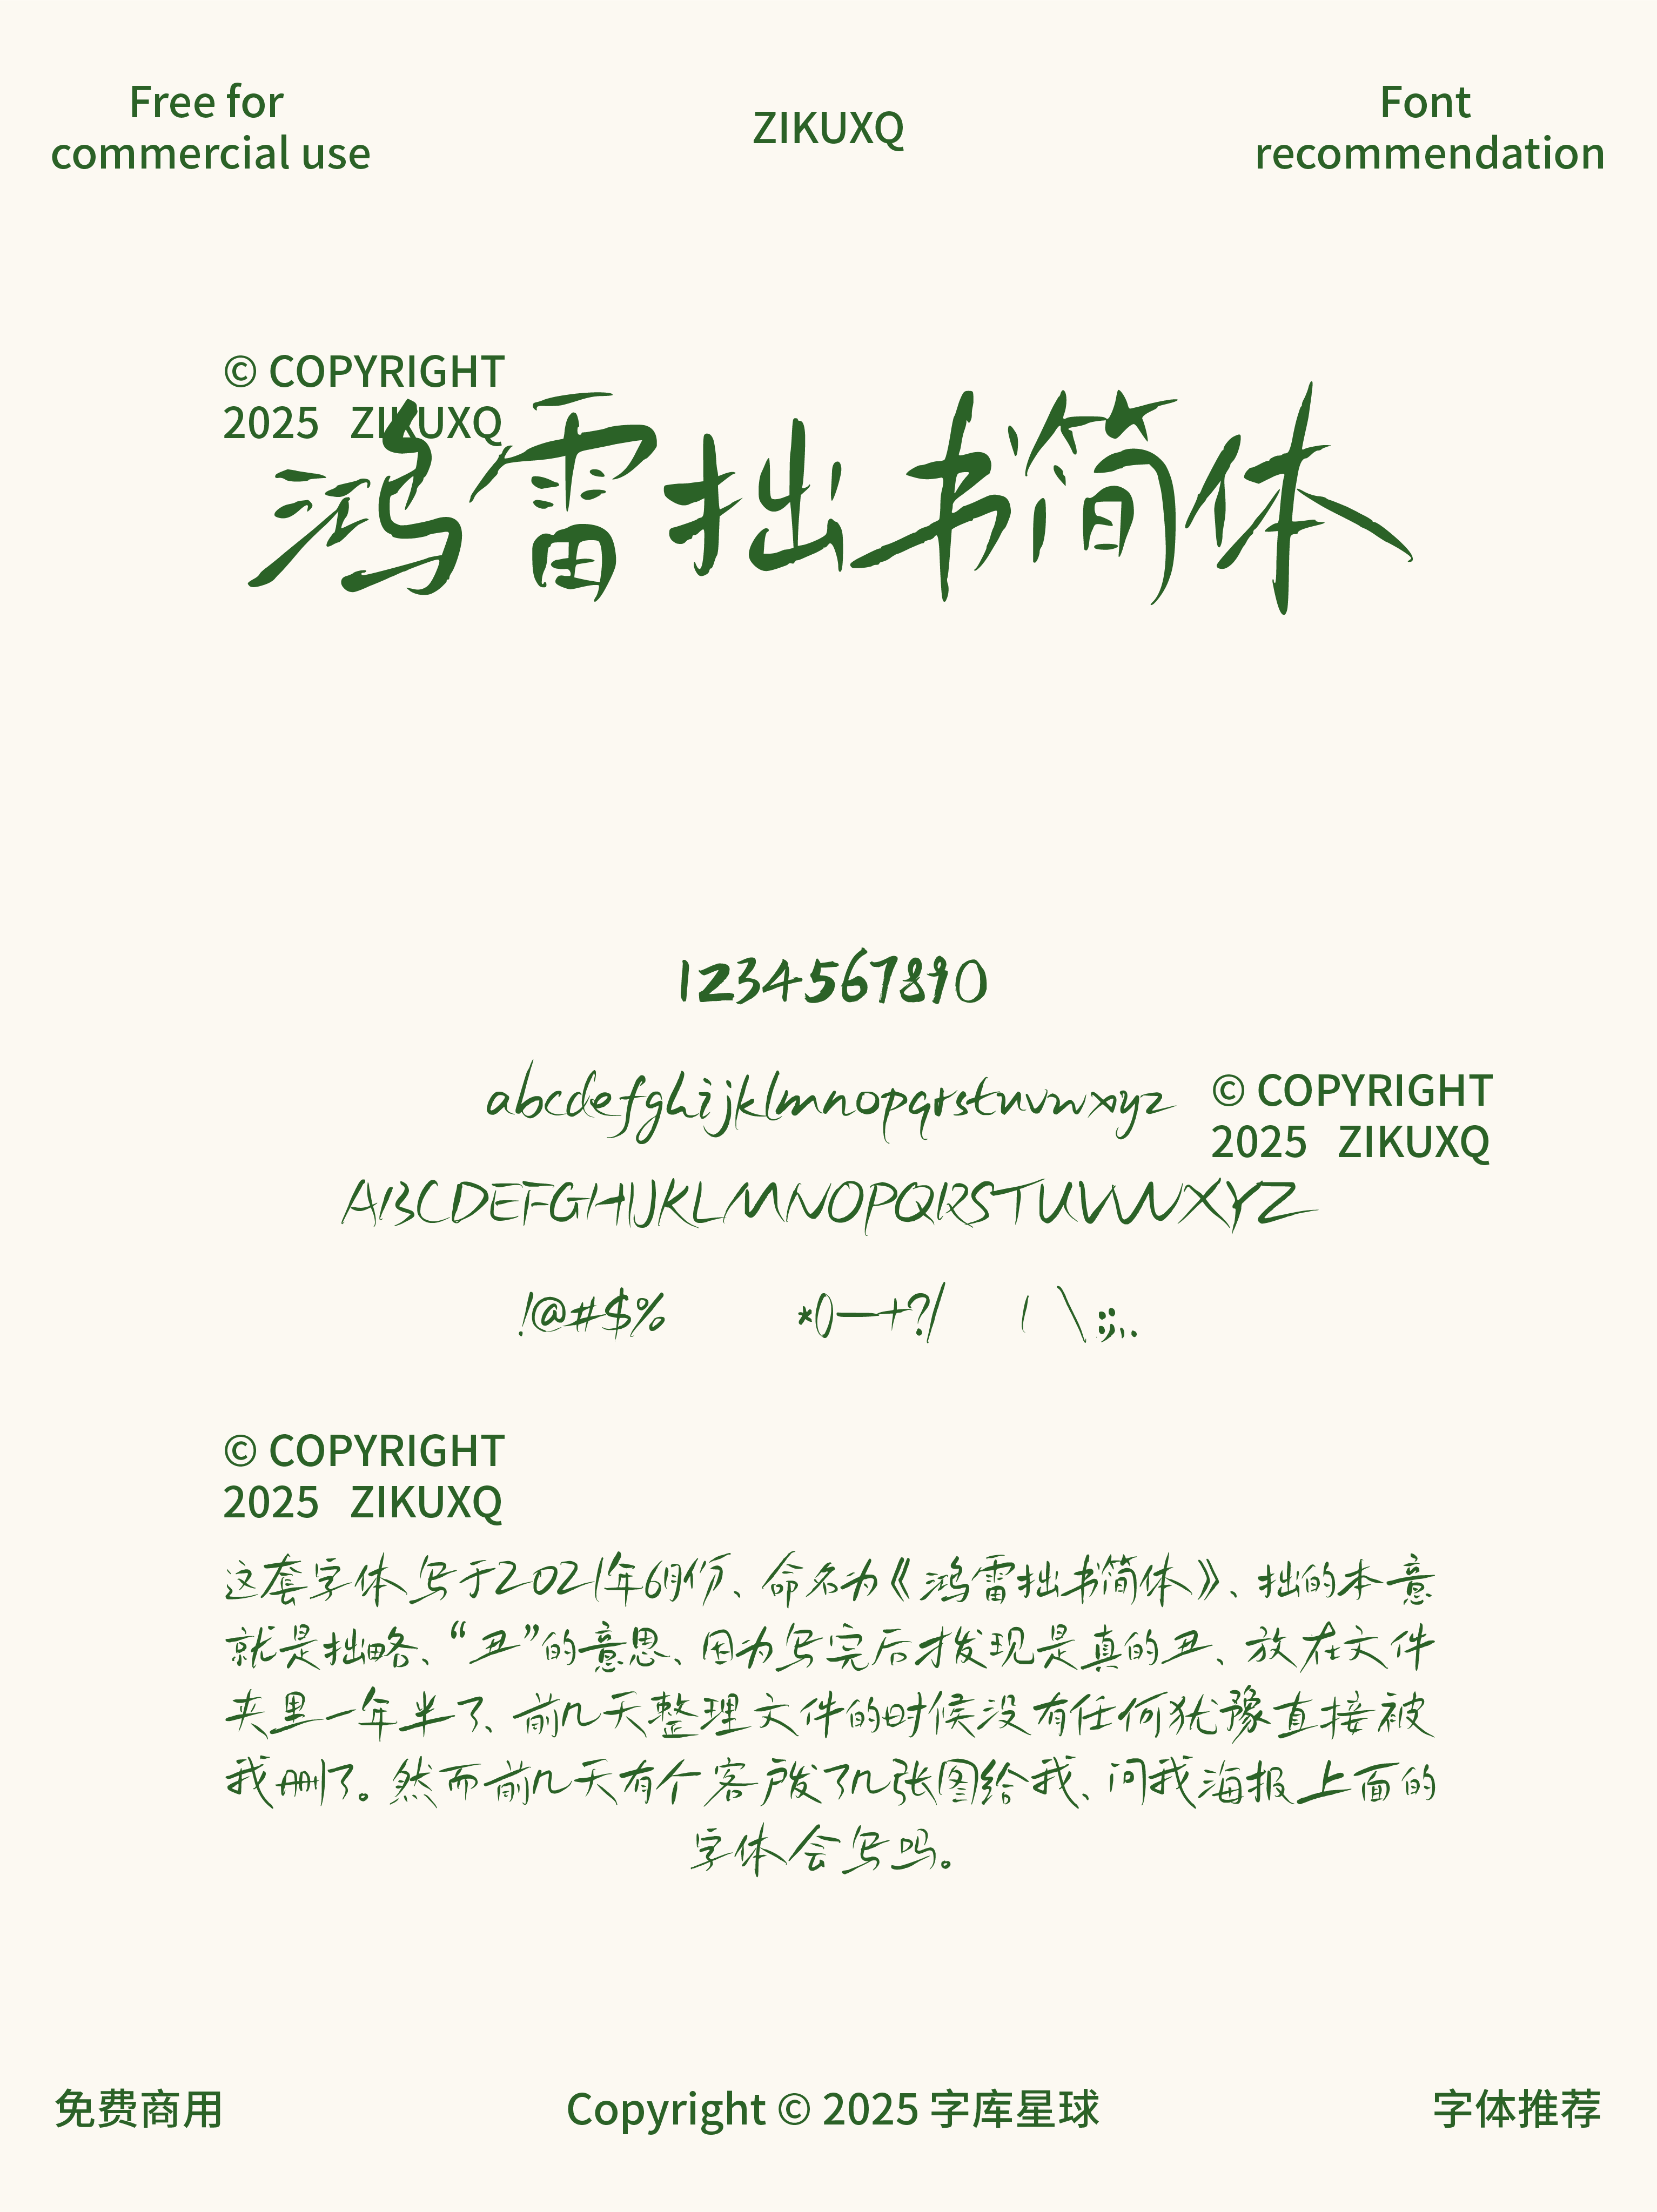 Free for
commercial use
ZIKUXQ
Font
recommendation
© COPYRIGHT
2025 ZIKUXQ
鸿雷拙书简体
1234567890
abcdefghijklmnopqrstuvwxyz
© COPYRIGHT
2025 ZIKUXQ
ABCDEFGHIJKLMNOPQRSTUVWXYZ
!@#$% *()—+?/ | \ :;,.
© COPYRIGHT
2025 ZIKUXQ
这套字体写于2021年6月份、命名为《鸿雷拙书简体》、拙的本意
就是拙略、“丑”的意思、因为写完后才发现是真的丑、放在文件
夹里一年半了、前几天整理文件的时候没有任何犹豫直接被
我删了。然而前几天有个客户发了几张图给我、问我海报上面的
字体会写吗。
免费商用
Copyright © 2025 字库星球
字体推荐